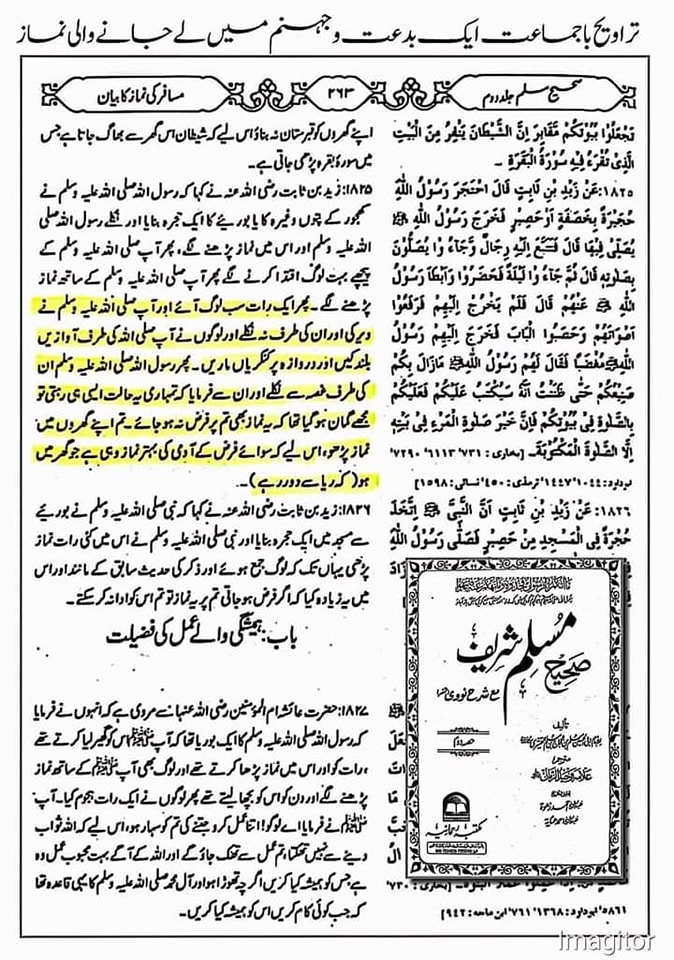 تراویح باجماعت ایک بدعت و جہنم میں لے جانے والی نماز
صحیح مسلم جلد دوم
۲۶۳
مسافر کی نماز کا بیان
تَجْعَلُوْا بُيُوْتَكُمْ مَقَابِرَ اِنَّ الشَّيْطَانَ يَنْفِرُ مِنَ الْبَيْتِ
الَّذِىْ تُقْرَءُ فِيْهِ سُوْرَةُ الْبَقَرَةِ ۔
۱۸۲۵:عَنْ زَيْدِ بْنِ ثَابِتٍ قَالَ احْتَجَرَ رَسُوْلُ اللّٰهِ
حُجَيْرَةً بِخَصَفَةٍ اَوْحَصِيْرٍ فَخَرَجَ رَسُوْلُ اللّٰهِ ﷺ
يُصَلِّى فِيْهَا قَالَ فَتَتَبَّعَ اِلَيْهِ رِجَالٌ وَّجَاءُ وْا يُصَلُّوْنَ
بِصَلٰوتِهٖ قَالَ ثُمَّ جَاءُ وْا لَيْلَةً فَحَضَرُوْا وَاَبْطَأَ رَسُوْلُ
اللّٰهِ ﷺ عَنْهُمْ قَالَ فَلَمْ يَخْرُجْ اِلَيْهِمْ فَرَفَعُوْا
اَصْوَاتَهُمْ وَحَصَبُوا الْبَابَ فَخَرَجَ اِلَيْهِمْ رَسُوْلُ
اللّٰهِ ﷺ مُغْضَبًا فَقَالَ لَهُمْ رَسُوْلُ اللّٰهِ ﷺ مَازَالَ بِكُمْ
صَنِيْعُكُمْ حَتّٰى ظَنَنْتُ اَنَّهٗ سَيُكْتَبُ عَلَيْكُمْ فَعَلَيْكُمْ
بِالصَّلٰوةِ فِىْ بُيُوْتِكُمْ فَاِنَّ خَيْرَ صَلٰوةِ الْمَرْءِ فِىْ بَيْتِهٖ
اِلَّا الصَّلٰوةَ الْمَكْتُوْبَةَ۔ [بخاری : ۷۳۱ ' ۶۱۱۳ ' ۷۲۹۰'
ابوداود: ۱۰۴۴ ' ۱۴۴۷ ترمذی : ۴۵۰ نسائی : ۱۵۹۸]
۱۸۲۶: عَنْ زَيْدِ بْنِ ثَابِتٍ اَنَّ النَّبِىَّ ﷺ اتَّخَذَ
حُجْرَةً فِى الْمَسْجِدِ مِنْ حَصِيْرٍ فَصَلّٰى رَسُوْلُ اللّٰهِ
اپنے گھروں کو قبرستان نہ بناؤ اس لیے کہ شیطان اس گھر سے بھاگ جاتا ہے جس
میں سورۂ بقرہ پڑھی جاتی ہے۔
۱۸۲۵: زید بن ثابت رضی اللہ عنہ نے کہا کہ رسول اللہ صلی اللہ علیہ وسلم نے
کھجور کے پتوں وغیرہ کا یا بوریے کا ایک حجرہ بنایا اور نکلے رسول اللہ صلی
اللہ علیہ وسلم اور اس میں نماز پڑھنے لگے، پھر آپ صلی اللہ علیہ وسلم کے
پیچھے بہت لوگ اقتدا کرنے لگے پھر آپ صلی اللہ علیہ وسلم کے ساتھ نماز
پڑھنے لگے۔ پھر ایک رات سب لوگ آئے اور آپ صلی اللہ علیہ وسلم نے
دیر کی اور ان کی طرف نہ نکلے اور لوگوں نے آپ صلی اللہ کی طرف آوازیں
بلند کیں اور دروازہ پر کنکریاں ماریں۔ پھر رسول اللہ صلی اللہ علیہ وسلم ان
کی طرف غصہ سے نکلے اور ان سے فرمایا کہ تمہاری یہ حالت ایسی ہی رہتی تو
مجھے گمان ہو گیا تھا کہ یہ نماز بھی تم پر فرض نہ ہو جائے۔ تم اپنے گھروں میں
نماز پڑھو، اس لیے کہ سوائے فرض کے آدمی کی بہتر نماز وہی ہے جو گھر میں
ہو (کہ ریا سے دور رہے)۔
۱۸۲۶: زید بن ثابت رضی اللہ عنہ نے کہا کہ نبی صلی اللہ علیہ وسلم نے بوریے
سے مسجد میں ایک حجرہ بنایا اور نبی صلی اللہ علیہ وسلم نے اس میں کئی رات نماز
پڑھی یہاں تک کہ لوگ جمع ہوئے اور ذکر کی حدیث سابق کے مانند اور اس
میں یہ زیادہ کیا کہ اگر فرض ہو جاتی تم پر یہ نماز تو تم اس کو ادا نہ کر سکتے۔
باب: ہمیشگی والے عمل کی فضیلت
۱۸۲۷: حضرت عائشہ ام المؤمنین رضی اللہ عنہا سے مروی ہے کہ انہوں نے فرمایا
کہ رسول اللہ صلی اللہ علیہ وسلم کا ایک بوریا تھا کہ آپ ﷺ اس کو گھیر لیا کرتے تھے
رات کو اور اس میں نماز پڑھا کرتے تھے اور لوگ بھی آپ ﷺ کے ساتھ نماز
پڑھنے لگے اور دن کو اس کو بچھا لیتے تھے پھر لوگوں نے ایک رات ہجوم کیا۔ آپ
ﷺ نے فرمایا اے لوگو! اتنا عمل کرو جتنے کی تم کو سہار ہو، اس لیے کہ اللہ ثواب
دینے سے نہیں تھکتا، تم عمل سے تھک جاؤ گے اور اللہ کے آگے بہت محبوب عمل وہ
ہے جس کو ہمیشہ کیا کریں اگرچہ تھوڑا ہو اور آل محمد صلی اللہ علیہ وسلم کا یہی قاعدہ تھا
کہ جب کوئی کام کریں اس کو ہمیشہ کیا کریں۔
صحیح مسلم شریف
مع شرح نووی
تالیف
حصہ دوم
مترجم
علامہ وحید الزمان
مکتبہ رحمانیہ
[بخاری : ۷۳۰
۵۸۶۱ ' ابوداود : ۱۳۶۸ ' ۷۶۱ ' ابن ماجه : ۹۴۲]
Imagitor